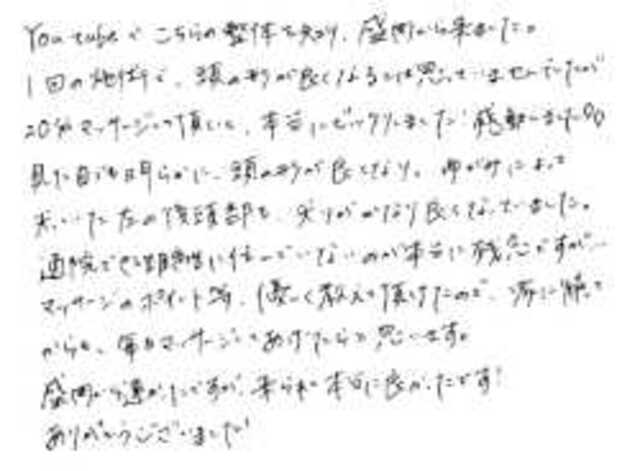 YouTubeで こちらの整体を知り、盛岡から来ました。
1回の施術で、頭の形が良くなるとは思っていませんでしたが
20分マッサージして頂いて、本当にビックリしました! 感動しました
見た目でも明らかに、頭の形が良くなり、ゆがみによって
いた左の後頭部も、かなり良くなっていました。
通院できる距離に住んでいないのが本当に残念ですが…
マッサージのポイント等、優しく教えて頂けたので、家に帰って
からも、毎日マッサージしてあげたいと思います。
盛岡から遠かったですが、来られて本当に良かったです!
ありがとうございました!